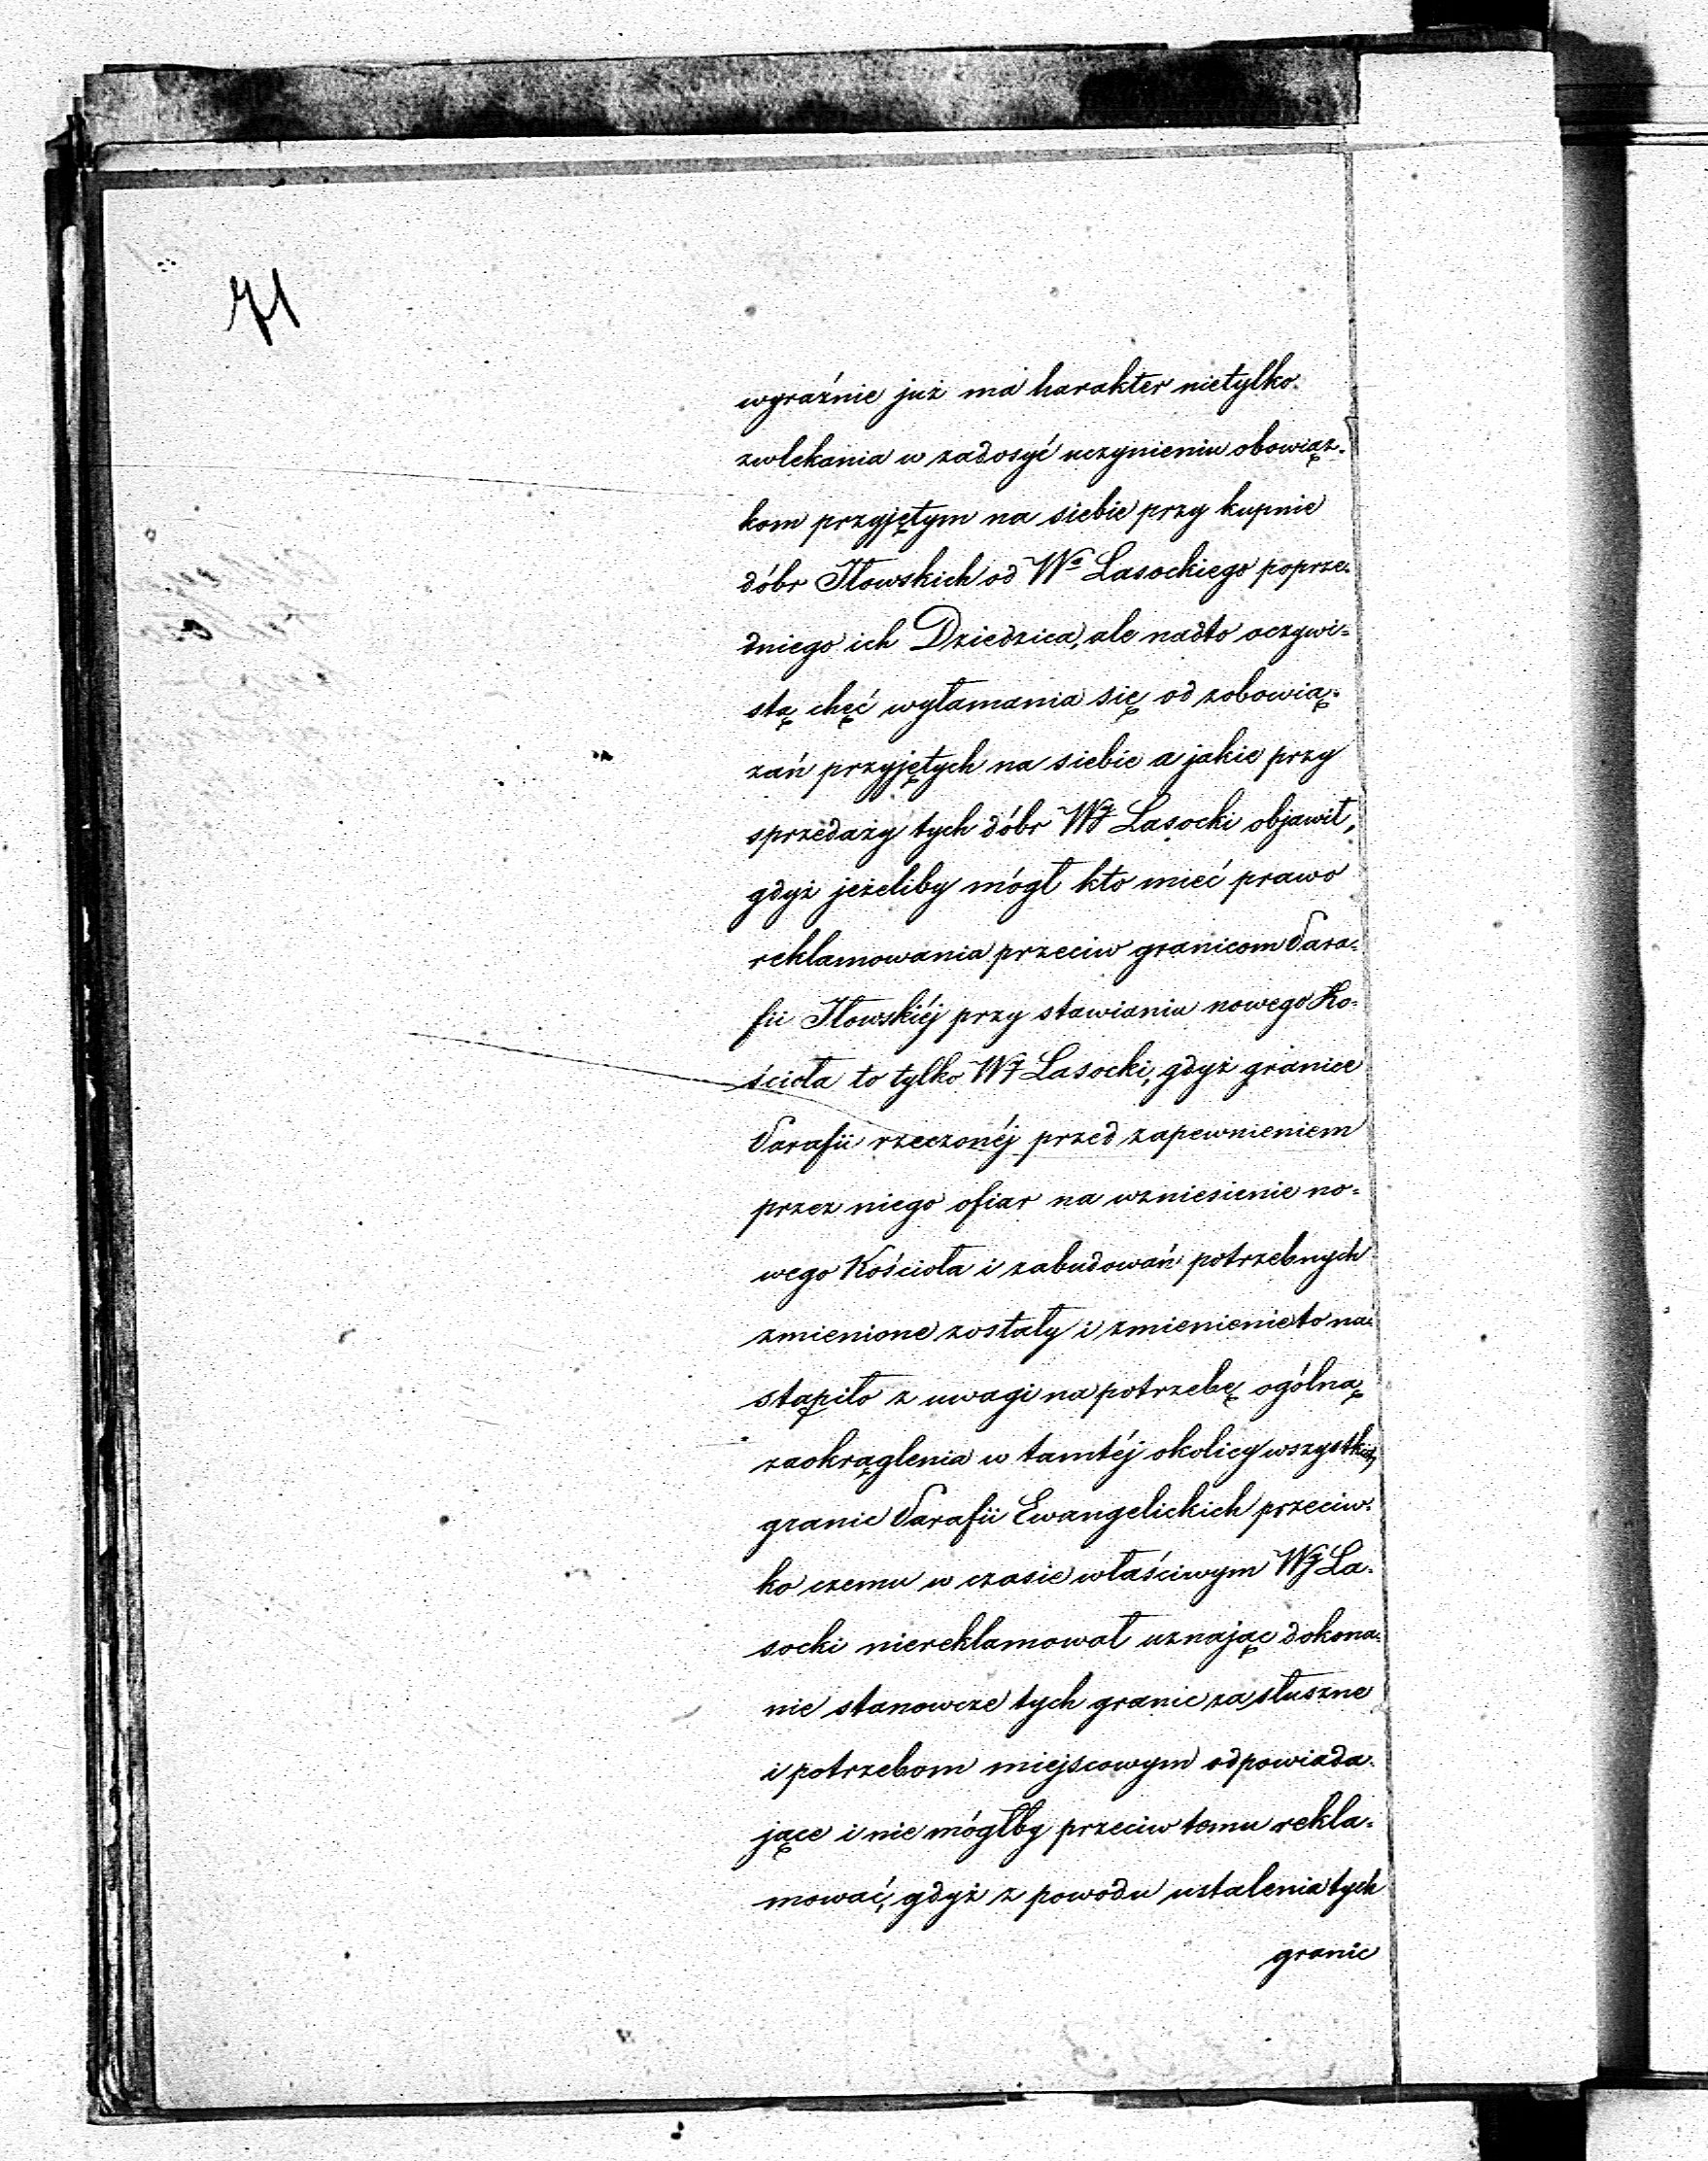 71
wyraźnie już ma harakter nietylko
zwlekania w zadosyć uczynieniu obowiąz-
kom przyjętym na siebie przy kupnie
dóbr Iłowskich od Wº Lasockiego poprze-
dniego ich Dziedzica, ale nadto oczywi-
stą chęć wyłamania się od zobowią-
zań przyjętych na siebie a jakie przy
sprzedaży tych dóbr Wy Lasocki objawił,
gdyż jeżeliby mógł kto mieć prawo
reklamowania przeciw granicom Para-
fii Iłowskiéj przy stawianiu nowego Ko-
ścioła to tylko Wy Lasocki, gdyż granice
Parafii rzeczonéj przed zapewnieniem
przez niego ofiar na wzniesienie no-
wego Kościoła i zabudowań potrzebnych
zmienione zostały i zmienienie to na-
stąpiło z uwagi na potrzebę ogólną
zaokrąglenia w tamtéj okolicy wszystkich
granic Parafii Ewangelickich przeciw-
ko czemu w czasie właściwym Wy La-
socki niereklamował uznając dokona-
nie stanowcze tych granic za słuszne
i potrzebom miejscowym odpowiada-
jące i nie mógłby przeciw temu rekla-
mować, gdyż z powodu ustalenia tych
granic